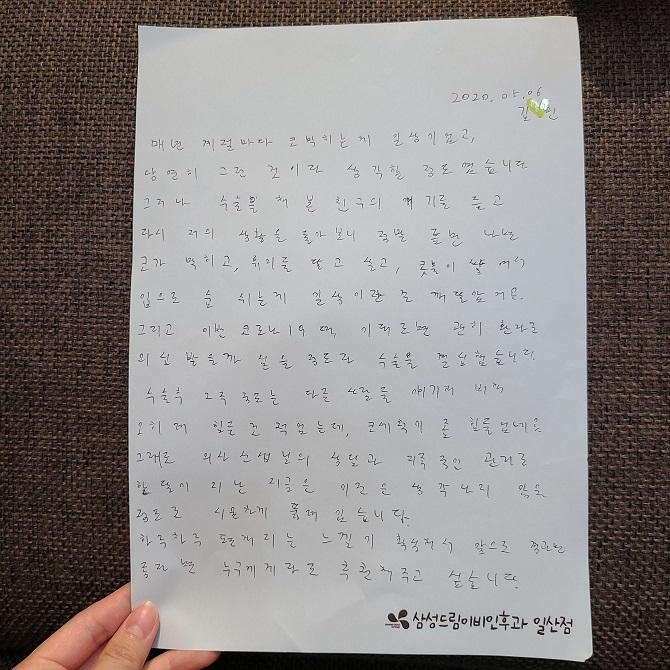 2020. 05. 06
김 빈
매년 계절마다 코막히는게 일상이었고,
당연히 그런 것이다 생각할 정도였습니다
그러나 수술을 해 본 친구의 얘기를 듣고
다시 저의 생활을 돌아보니 정말 틈만 나면
코가 막히고, 휴지를 달고 살고, 콧물이
입으로 숨 쉬는게 일상이란 걸 깨달았거든.
그리고 이번 코로나19 때, 기다리면 괜히 환자로
의심 받을까 싶을 정도라 수술을 결심했습니다.
수술후 2주 정도는 다른 사람들 얘기에 비해
오히려 힘든 건 적었는데, 코세척기 좀 힘들었네요
그래도 의사 선생님의 상담과 지속적인 관리로
한달이 지난 지금은 이전은 생각나지 않을
정도로 시원하게 뚫려 있습니다.
하루하루 편해지는 느낌이 확실해서 앞으로 경과만
좋다면 누구에게라도 추천해주고 싶습니다.
삼성드림이비인후과 일산점